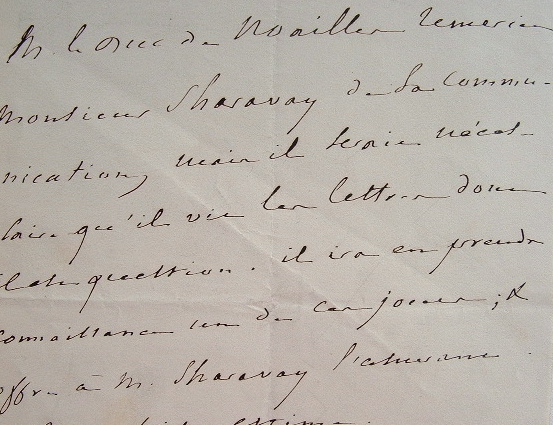 M. le Duc de Noailles remercie
Monsieur Sharavay de sa commu-
nication, mais il serait néces-
saire qu'il vit les lettres dont
il est question. il ira en prendre
connaissance un de ces jours ; &
offre à M. Sharavay l'assurance
estime.